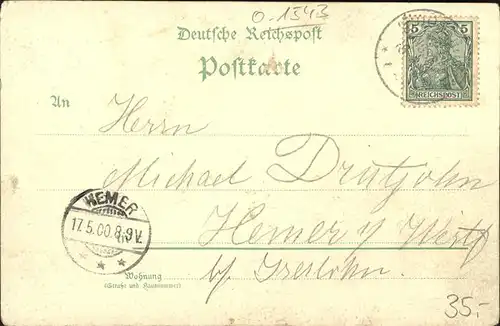 0-1543
Deutsche Reichspost
Postkarte
5 5
REICHSPOST
An
Herrn
Michael Drutjohn
HEMER
17.5.00.8-9V.
Hemer i/Westf
b/ Iserlohn
Wohnung
(Straße und Hausnummer)
35,-